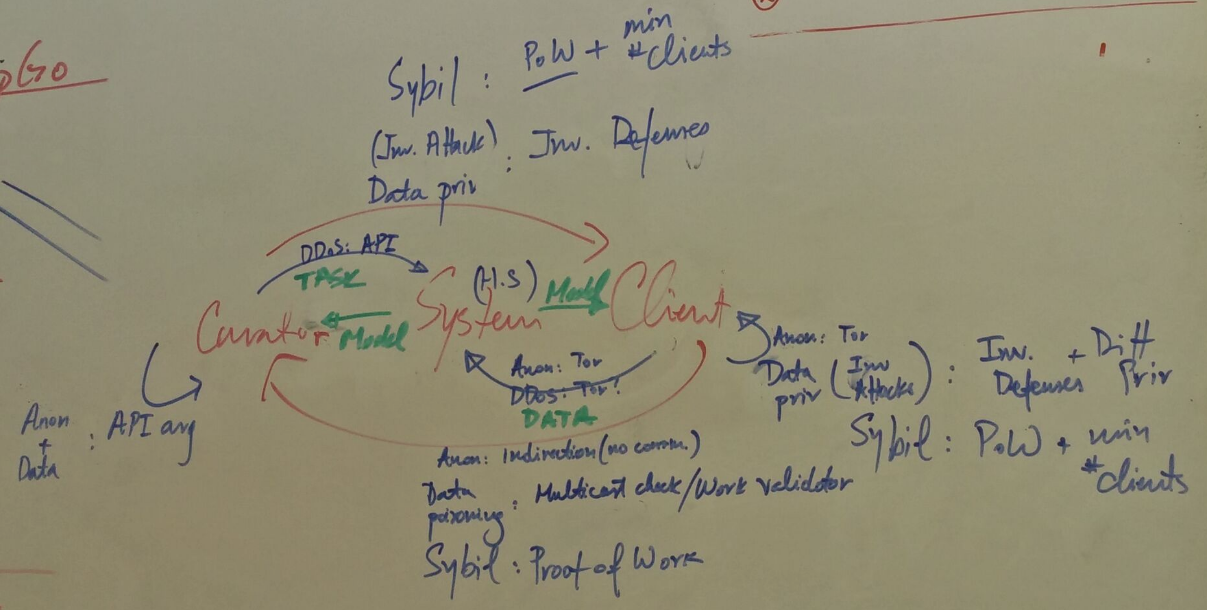 Sybil : PoW + min #clients
(Inv. Attack)
Data priv : Inv. Defenses
DDoS: API
TASK
Curator
Model
System
(H.S)
Model
Client
Anon: Tor
DDos: Tor?
DATA
Anon: Tor
Data priv (Inv Attacks) : Inv. Defenses + Diff Priv
Sybil : PoW + min #clients
Anon + Data : API arg
Anon: Indirection (no comm.)
Data poisoning : Multicast check/Work validator
Sybil : Proof of Work